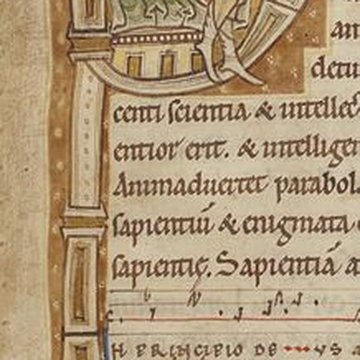 an
detur
centi scientia & intellec
entior erit. & intelliget
Animadvertet parabol
sapientiū & enigmata
sapientię. Sapientiā a
N PRINCIPIO DE ... VS